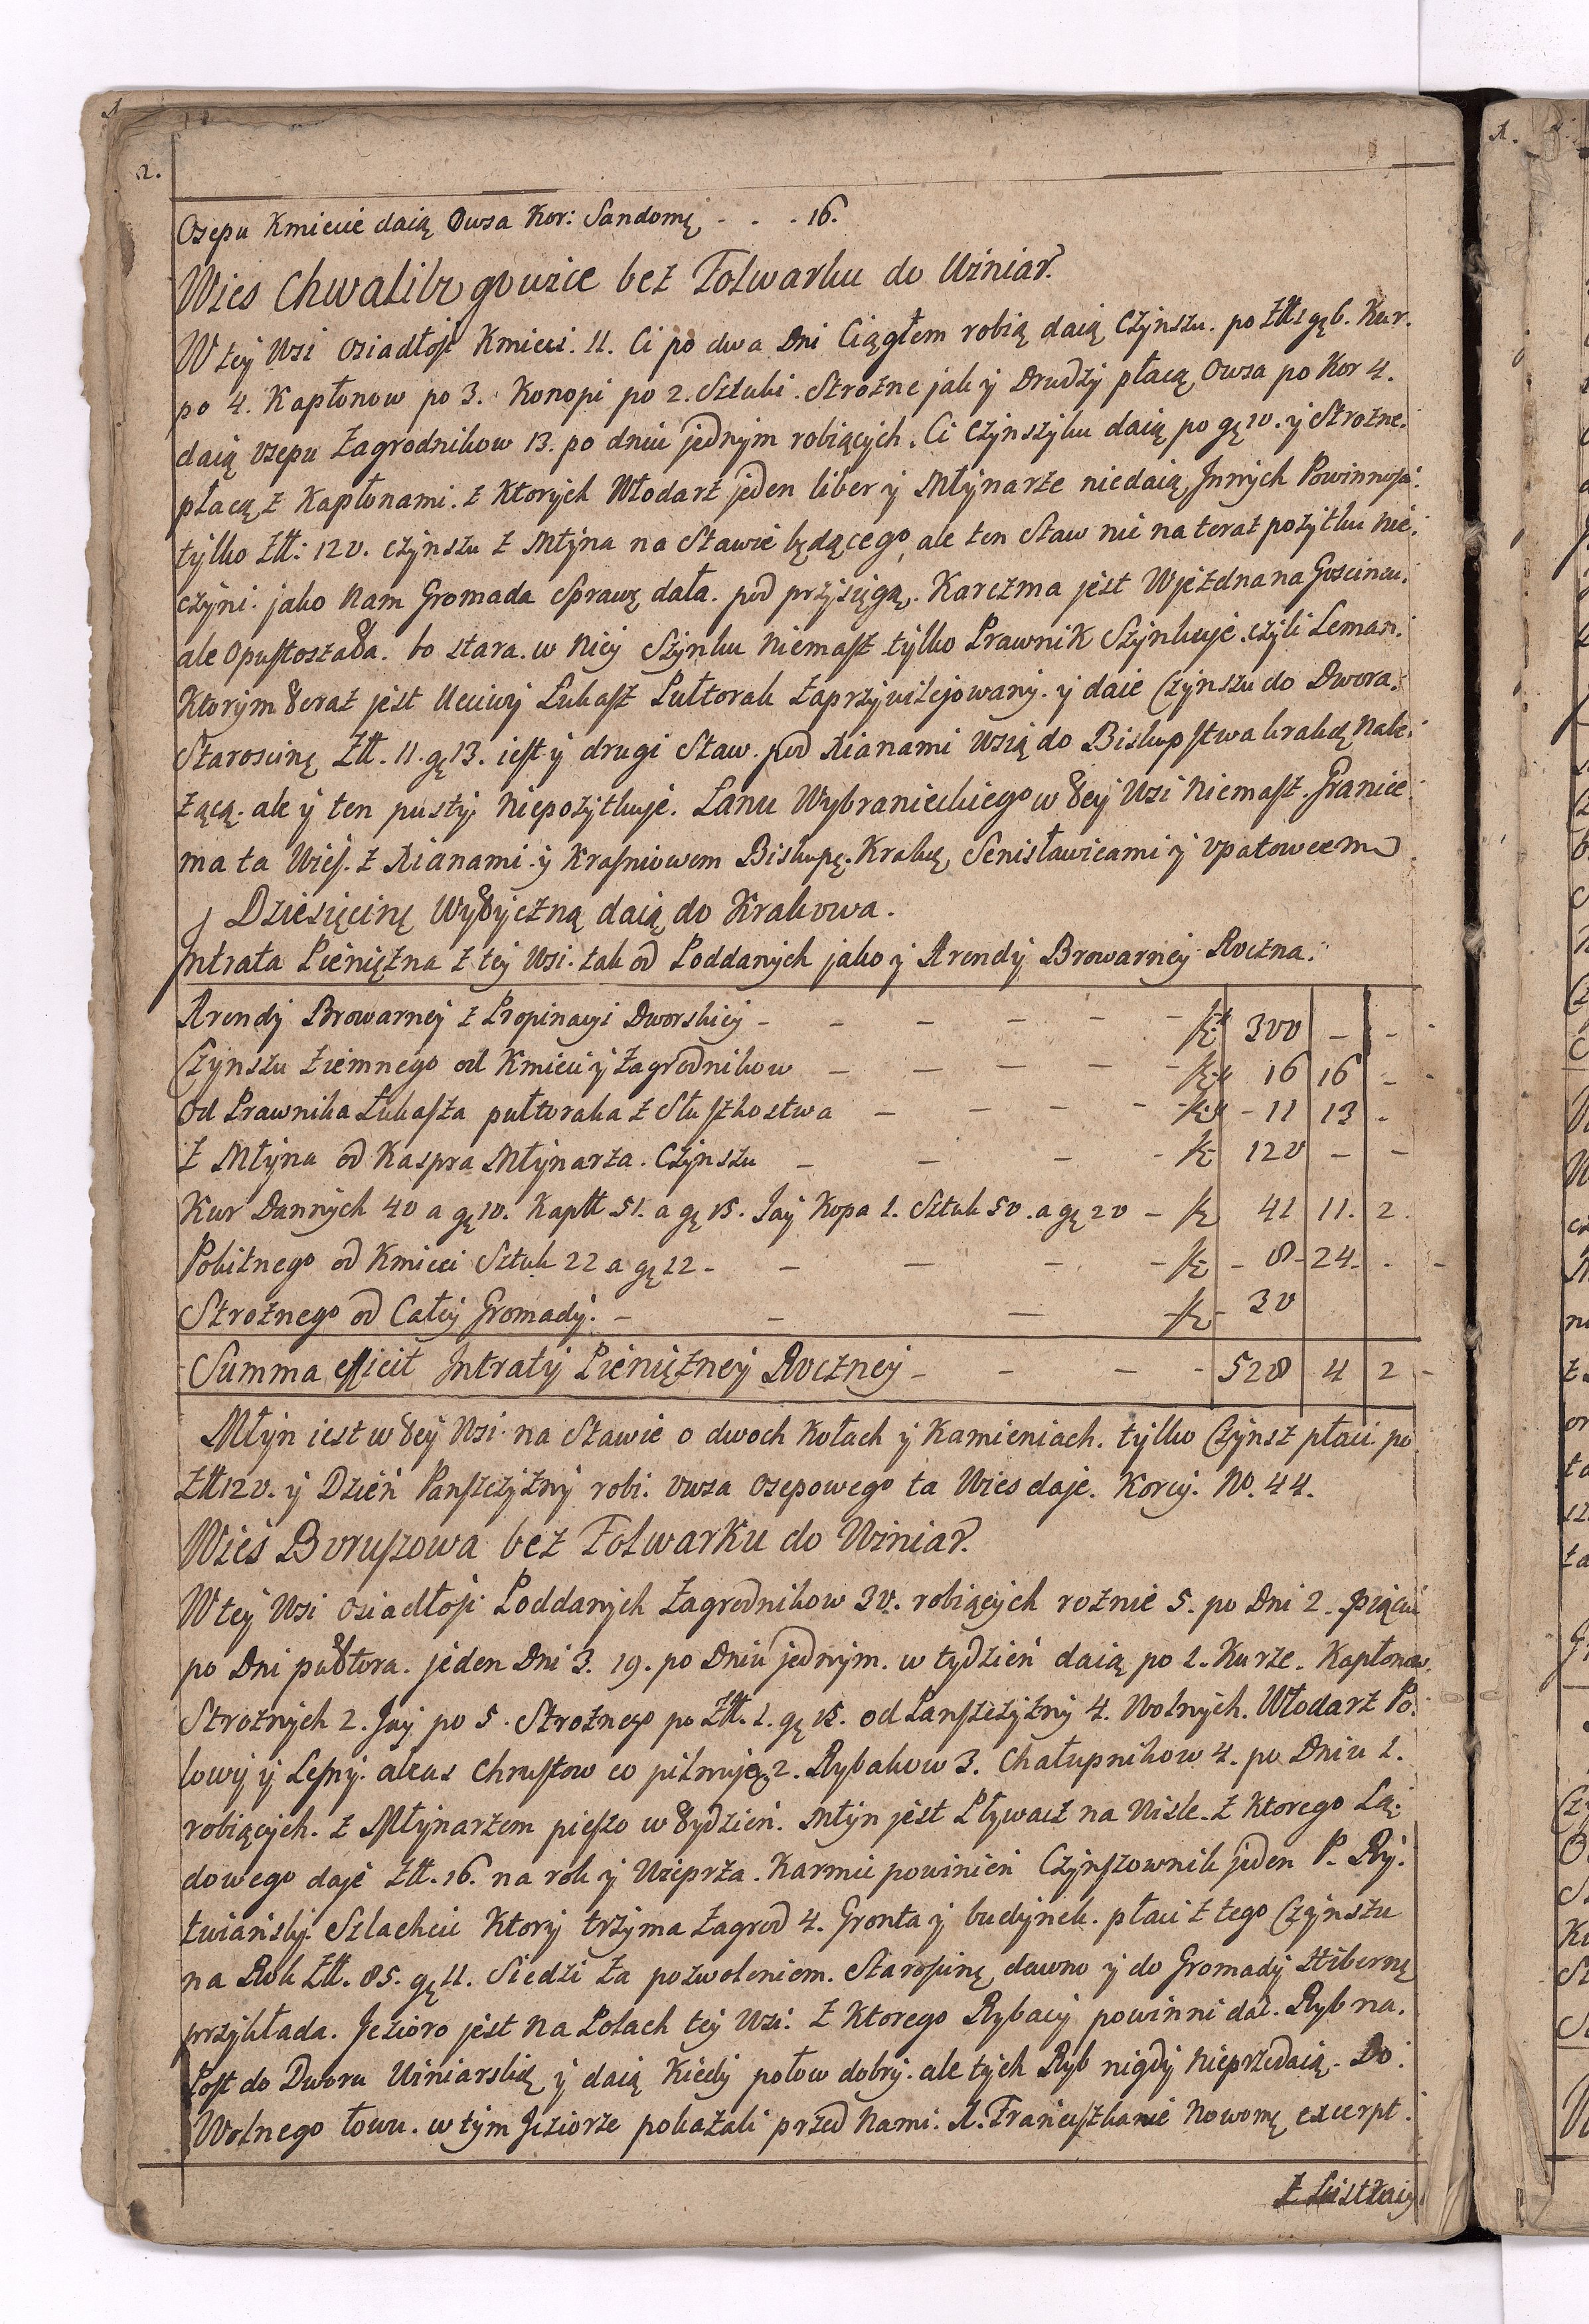 2.
Osepu Kmiecie daią Owsa Kor: Sandomę - - - 16.
Wies Chwalibogowice bez Folwarku do Winiar.
W tey Wsi Osiadłośi Kmieci. 11. Ci po dwa Dni Ciągłem robią daią Czynszu. po Złł 1 gę 6. Kur.
po 4. Kapłonow po 3. Konopi po 2. Sztuki. Strozne jak y Drudzy płacą Owsa po Kor 4.
daią osepu Zagrodnikow 13. po dniu jednym robiących. Ci Czynszyku daią po gę 10. y Strozne.
płacą z Kapłonami. z Ktorych Włodarz jeden liber y Młynarze niedaią Jnnych Powinnośi.
tylko Złł: 120. czynszu z Młyna na Stawie będącego, ale ten Staw nic na teraz pozytku nie
czyni. jako Nam Gromada Sprawę dała. pod przysięgą. Karczma jest Wjezdna na Goscincu.
ale Opustoszała. bo stara. w Niey Szynku Niemasz tylko Prawnik Szynkuje. czyli Leman.
Ktorym teraz jest Ucciwy Łukasz Pułtorak Zaprzywilejowany. y daie Czynszu do Dwora.
Staroscinę Złł. 11. gę 13. iest y drugi Staw. pod Kianami Wsią do Biskupstwa krakę Nale-
zącą. ale y ten pusty Niepozytkuje. Łanu Wybranieckiego w tey Wsi Niemasz. Granice
ma ta Wieś. z Kianami. y Kraśniowem Biskupę. Krakę, Senisławicami y opatowcem
Dziesięcinę Wytyczną daią do Krakowa.
Jntrata Pieniężna z tey Wsi. tak od Poddanych jako y Arendy Browarney Roczna.
Arendy Browarney z Propinacyi Dworskiey - - - - - - 300 - -
Czynszu Ziemnego od Kmieci y Zagrodnikow - - - - - 16 16 -
Od Prawnika Łukasza pułtoraka z Słuszkostwa - - - - - 11 13 -
Z Młyna od Kaspra Młynarza. Czynszu - - - - 120 - -
Kur Dannych 40 a gę 10. Kapłł 51. a gę 15. Jay Kopa 1. Sztuk 50. a gę 20 - 41 11. 2.
Pobitnego od Kmieci Sztuk 22 a gę 12 - - - - - 8 - 24 - -
Stroznego od Całey Gromady. - - - - 30
Summa efficit Jntraty Pieniężney Roczney - - - - 528 4 2 -
Młyn iest w tey Wsi. na Stawie o dwoch Kołach y Kamieniach. tylko Czynsz płaci po
Złł 120. y Dzień Panszczyzny robi. Owsa Osepowego ta Wies daje. Korcy. No. 44.
Wieś Boruszowa bez Folwarku do Winiar.
W tey Wsi Osiadłośi Poddanych Zagrodnikow 30. robiących roznie 5. po Dni 2. piąciu
po Dni pułtora. jeden Dni 3. 19. po Dniu jednym. w tydzień daią po 1. Kurze. Kapłonow.
Stroznych 2. Jay po 5. Stroznego po Złł. 1. gę 15. od Panszczyzny 4. Wolnych. Włodarz Po-
lowy y Leśny. alius Chrustow co pilnuję, 2. Rybakow 3. Chałupnikow 4. po Dniu 1.
robiących. z Młynarzem pieszo w tydzień. Młyn jest Pływacz na Wisle. z Ktorego Lą-
dowego daje Złł. 16. na rok y Wieprza. Karmic powinien Czynszownik jeden P. Ry-
twiański. Szlachcic Ktory trzyma Zagrod 4. Gronta y budynek. płaci z tego Czynszu
na Rok Złł. 85. gę 11. Siedzi za pozwoleniem. Starośinę, dawno y do Gromady Hibernę
przykłada. Jezioro jest na Polach tey Wsi. z Ktorego Rybacy powinni dać. Ryb na.
Post do Dworu Winiarskię y daią Kiedy połow dobry. ale tych Ryb nigdy Nieprzedaią. Do
Wolnego łowu. w tym Jeziorze pokazali przed Nami. X. Franciszkanie Nowomę excerpt.
z Lustracyi